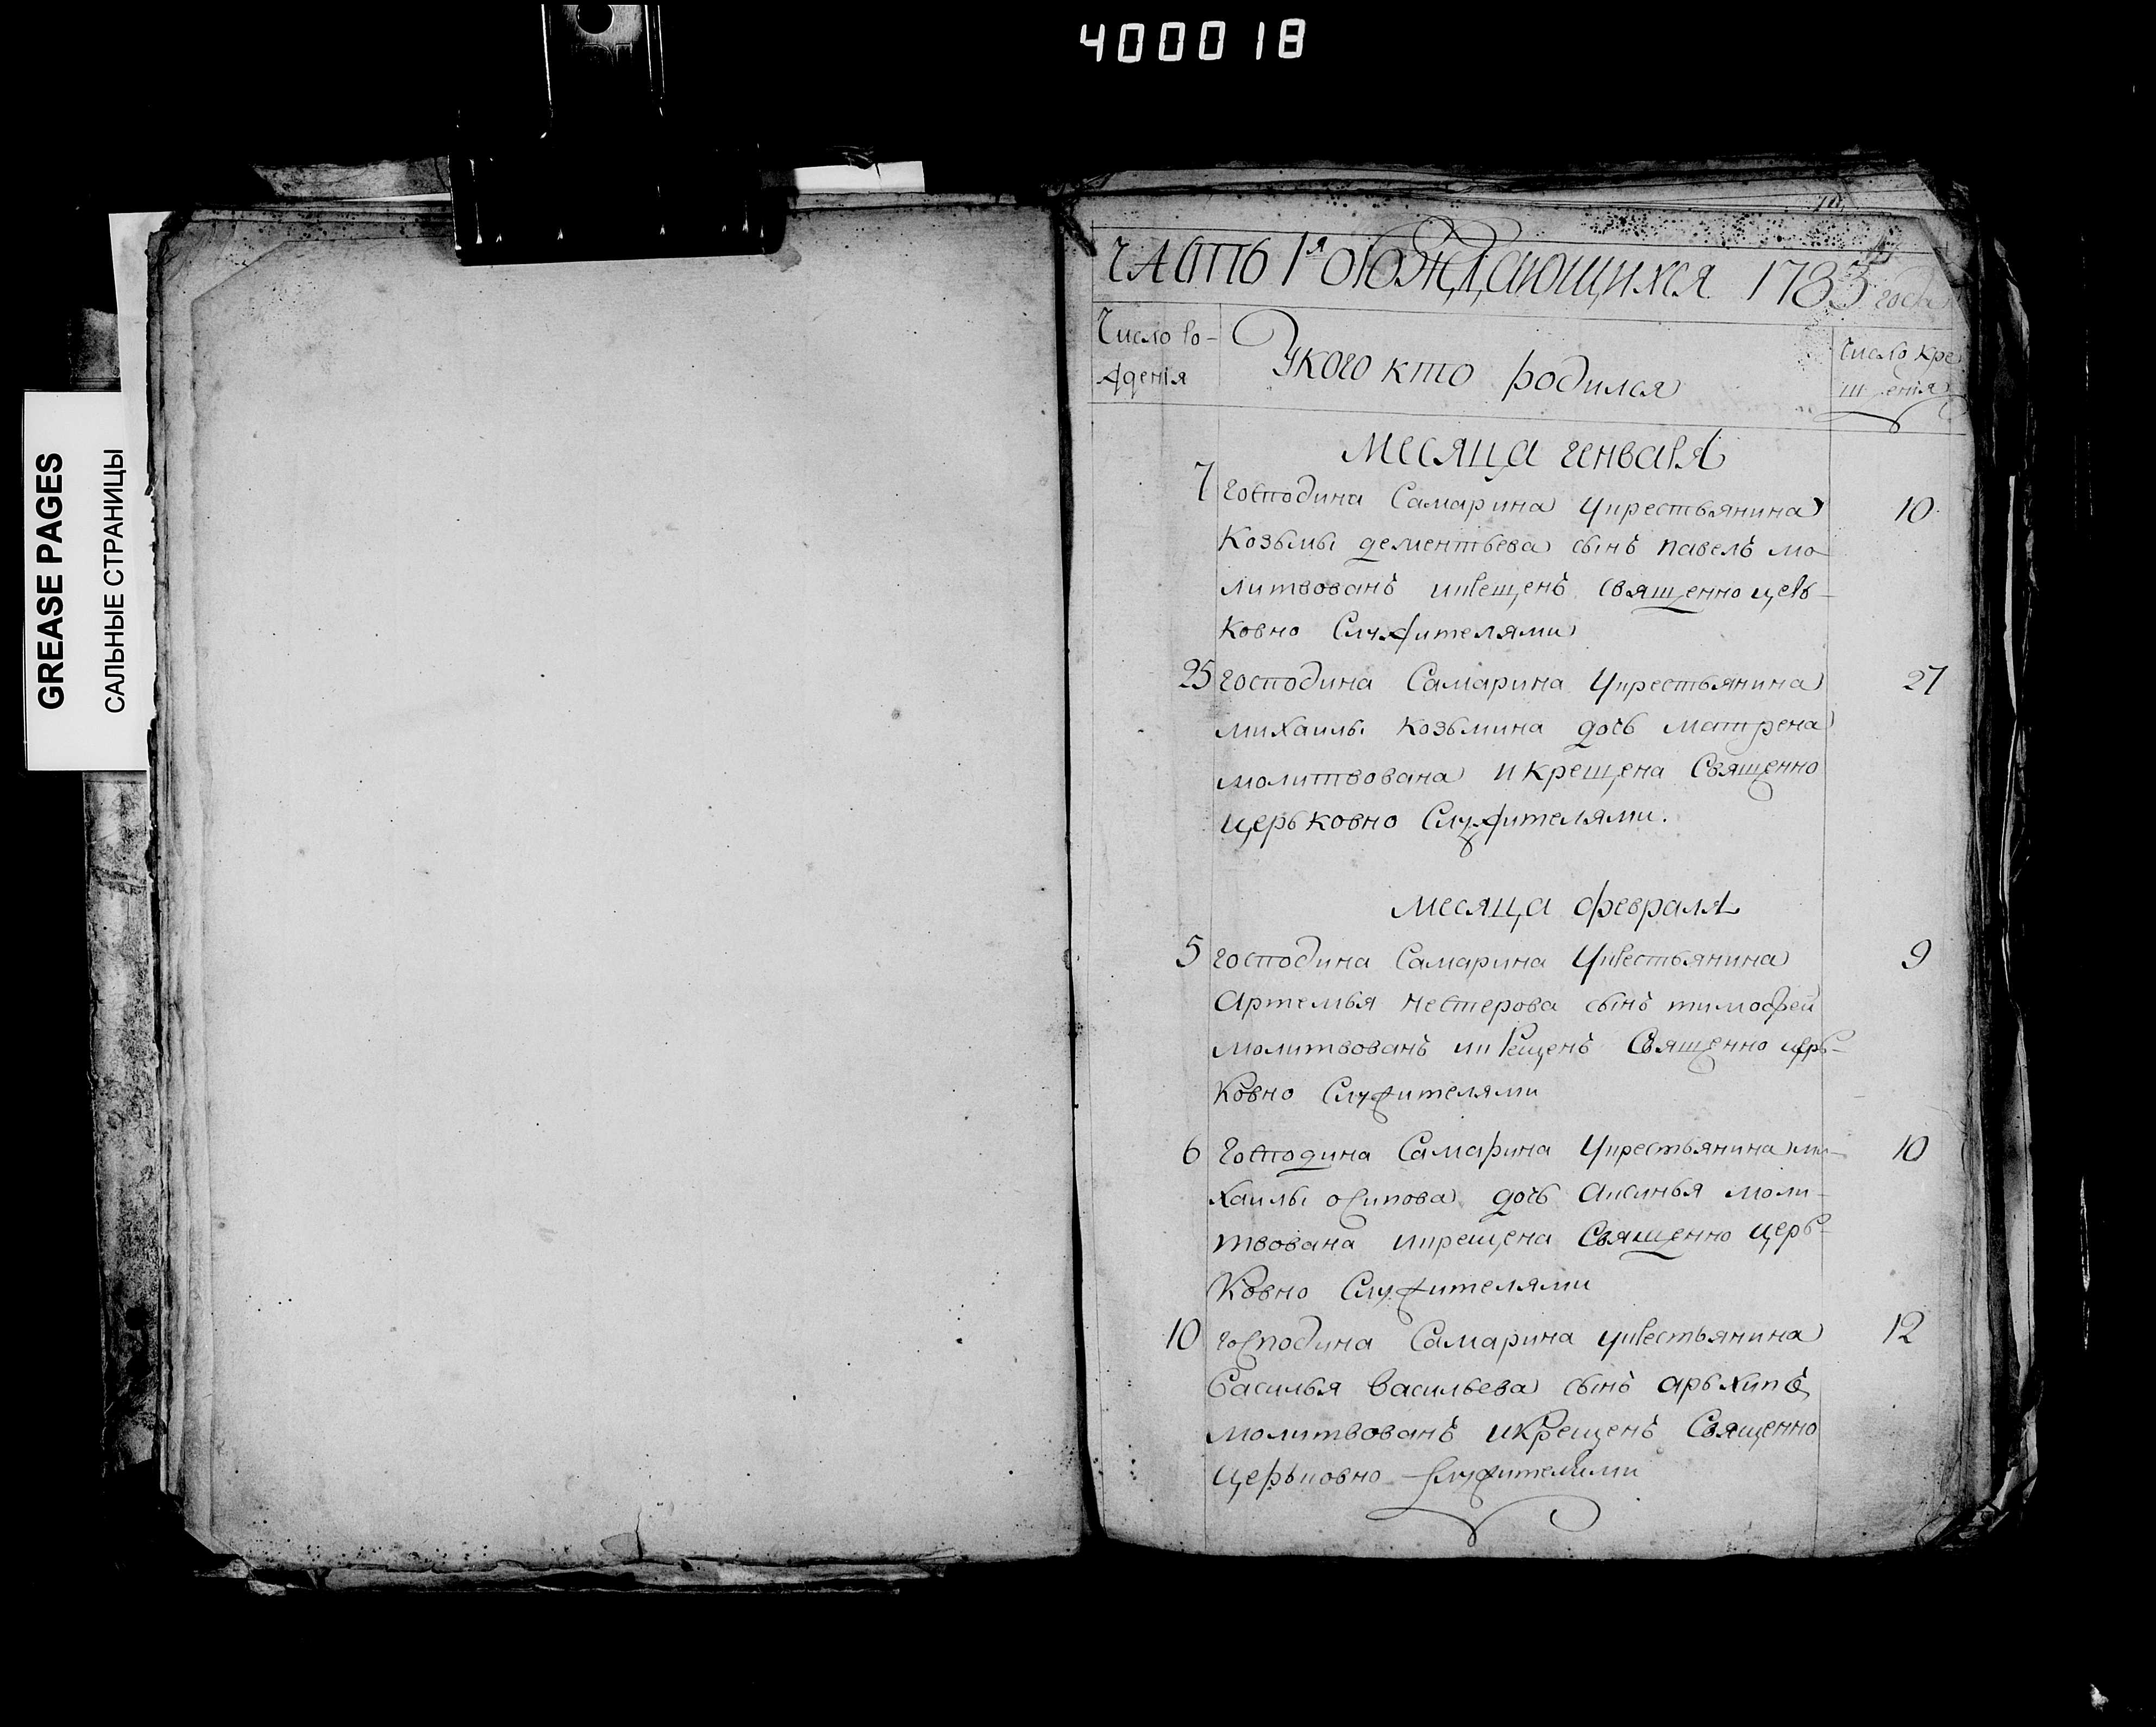 400018
GREASE PAGES
САЛЬНЫЕ СТРАНИЦЫ
ЧАСТЬ 1я О РОЖДАЮЩИХСЯ 1783 года
Число ро-
ждения
У кого кто родился
Число кре
щения
месяца генваря
7 господина Самарина у крестьянина 10
Козьмы дементьева сынъ павелъ мо-
литвованъ и крещенъ священно церь-
ковно Служителями
25 господина Самарина у крестьянина 27
михаилы козьмина дочь матрена
молитвована и крещена Священно
церьковно Служителями.
месяца февраля
5 господина Самарина у крестьянина 9
Артемья нестерова сынъ тимофей
молитвованъ и крещенъ Священно церь-
ковно Служителями
6 господина Самарина у крестьянина ми- 10
хаилы осипова дочь аксинья моли-
твована и крещена Священно церь-
ковно Служителями
10 господина Самарина у крестьянина 12
Василья васильева сынъ арьхипъ
молитвованъ и крещенъ Священно
церьковно Служителями